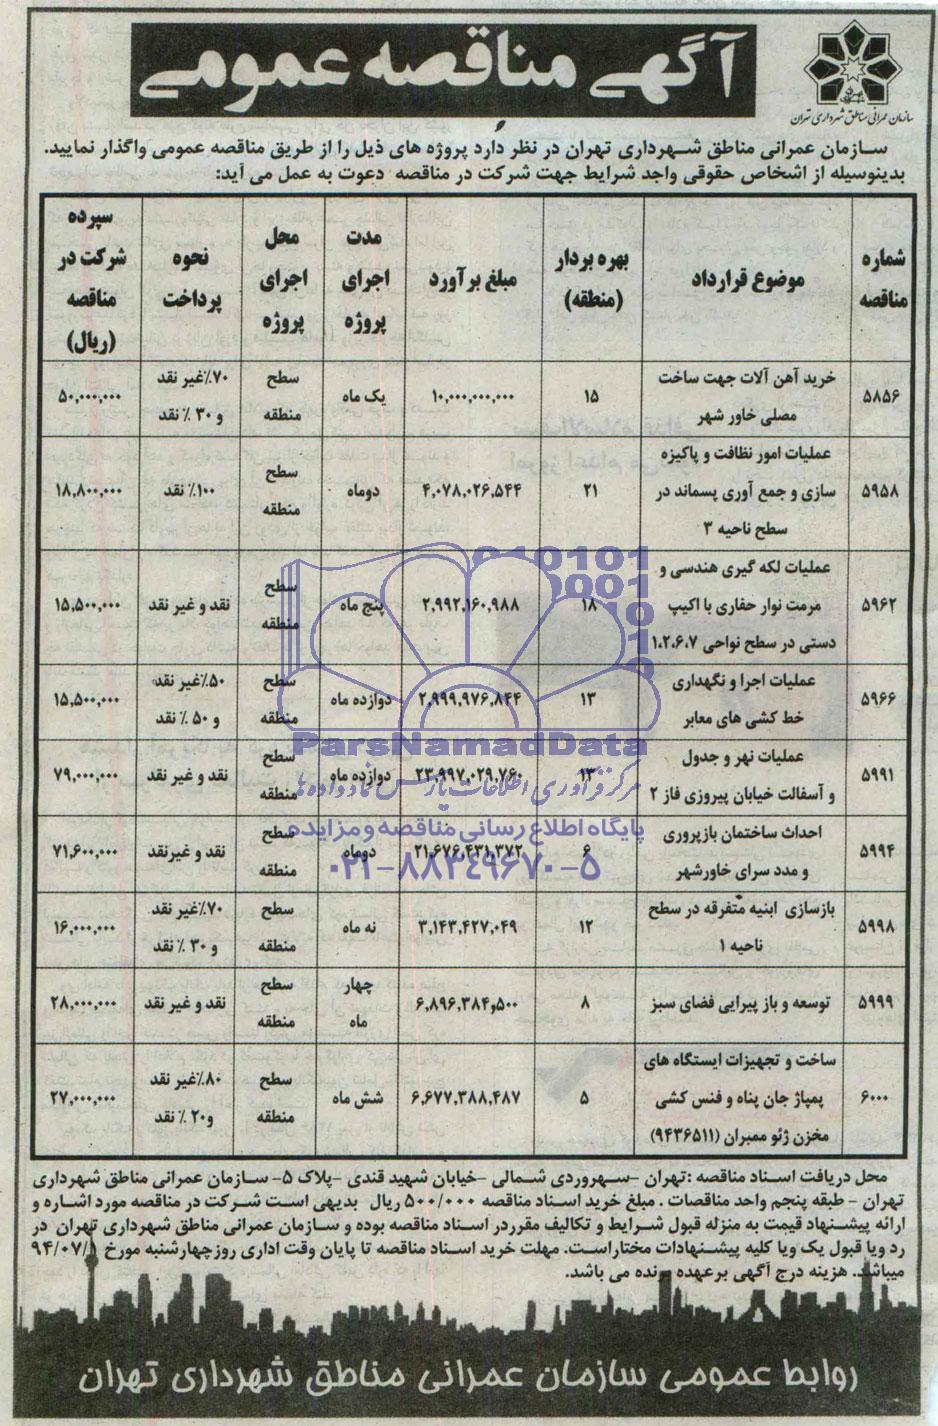 آگهی مناقصه عمومی
سازمان عمرانی مناطق شهرداری تهران
سازمان عمرانی مناطق شهرداری تهران در نظر دارد پروژه های ذیل را از طریق مناقصه عمومی واگذار نمایید.
بدینوسیله از اشخاص حقوقی واجد شرایط جهت شرکت در مناقصه دعوت به عمل می آید:
شماره مناقصه | موضوع قرارداد | بهره بردار (منطقه) | مبلغ برآورد | مدت اجرای پروژه | محل اجرای پروژه | نحوه پرداخت | سپرده شرکت در مناقصه (ریال)
۵۸۵۶ | خرید آهن آلات جهت ساخت مصلی خاور شهر | ۱۵ | ۱۰,۰۰۰,۰۰۰,۰۰۰ | یک ماه | سطح منطقه | ۷۰٪غیر نقد و ۳۰ ٪ نقد | ۵۰,۰۰۰,۰۰۰
۵۹۵۸ | عملیات امور نظافت و پاکیزه سازی و جمع آوری پسماند در سطح ناحیه ۳ | ۲۱ | ۴,۰۷۸,۰۲۶,۵۴۴ | دوماه | سطح منطقه | ۱۰۰٪ نقد | ۱۸,۸۰۰,۰۰۰
۵۹۶۲ | عملیات لکه گیری هندسی و مرمت نوار حفاری با اکیپ دستی در سطح نواحی ۱،۲،۶،۷ | ۱۸ | ۲,۹۹۲,۱۶۰,۹۸۸ | پنج ماه | سطح منطقه | نقد و غیر نقد | ۱۵,۵۰۰,۰۰۰
۵۹۶۶ | عملیات اجرا و نگهداری خط کشی های معابر | ۱۳ | ۲,۹۹۹,۹۷۶,۸۴۴ | دوازده ماه | سطح منطقه | ۵۰٪غیر نقد و ۵۰ ٪ نقد | ۱۵,۵۰۰,۰۰۰
۵۹۹۱ | عملیات نهر و جدول و آسفالت خیابان پیروزی فاز ۲ | ۱۳ | ۲۳,۹۹۷,۰۲۹,۷۶۰ | دوازده ماه | سطح منطقه | نقد و غیر نقد | ۷۹,۰۰۰,۰۰۰
۵۹۹۴ | احداث ساختمان بازپروری و مدد سرای خاورشهر | ۶ | ۲۱,۶۷۶,۴۳۱,۳۷۲ | دوماه | سطح منطقه | نقد و غیرنقد | ۷۱,۶۰۰,۰۰۰
۵۹۹۸ | بازسازی ابنیه متفرقه در سطح ناحیه ۱ | ۱۲ | ۳,۱۴۳,۴۲۷,۰۴۹ | نه ماه | سطح منطقه | ۷۰٪غیر نقد و ۳۰ ٪ نقد | ۱۶,۰۰۰,۰۰۰
۵۹۹۹ | توسعه و باز پیرایی فضای سبز | ۸ | ۶,۸۹۶,۳۸۴,۵۰۰ | چهار ماه | سطح منطقه | نقد و غیر نقد | ۲۸,۰۰۰,۰۰۰
۶۰۰۰ | ساخت و تجهیزات ایستگاه های پمپاژ جان پناه و فنس کشی مخزن ژئو ممبران (۹۴۳۶۵۱۱) | ۵ | ۶,۶۷۷,۳۸۸,۴۸۷ | شش ماه | سطح منطقه | ۸۰٪غیر نقد و۲۰ ٪ نقد | ۲۷,۰۰۰,۰۰۰
ParsNamadData
مرکز فرآوری اطلاعات پارس نماد داده ها
پایگاه اطلاع رسانی مناقصه و مزایده
۰۲۱-۸۸۳۴۹۶۷۰-۵
محل دریافت اسناد مناقصه :تهران -سهروردی شمالی -خیابان شهید قندی -پلاک ۵- سازمان عمرانی مناطق شهرداری
تهران - طبقه پنجم واحد مناقصات . مبلغ خرید اسناد مناقصه ۵۰۰/۰۰۰ ریال بدیهی است شرکت در مناقصه مورد اشاره و
ارائه پیشنهاد قیمت به منزله قبول شرایط و تکالیف مقرردر اسناد مناقصه بوده و سازمان عمرانی مناطق شهرداری تهران در
رد ویا قبول یک ویا کلیه پیشنهادات مختاراست. مهلت خرید اسناد مناقصه تا پایان وقت اداری روزچهارشنبه مورخ ۹۴/۰۷/
میباشد. هزینه درج آگهی برعهده برنده می باشد.
روابط عمومی سازمان عمرانی مناطق شهرداری تهران